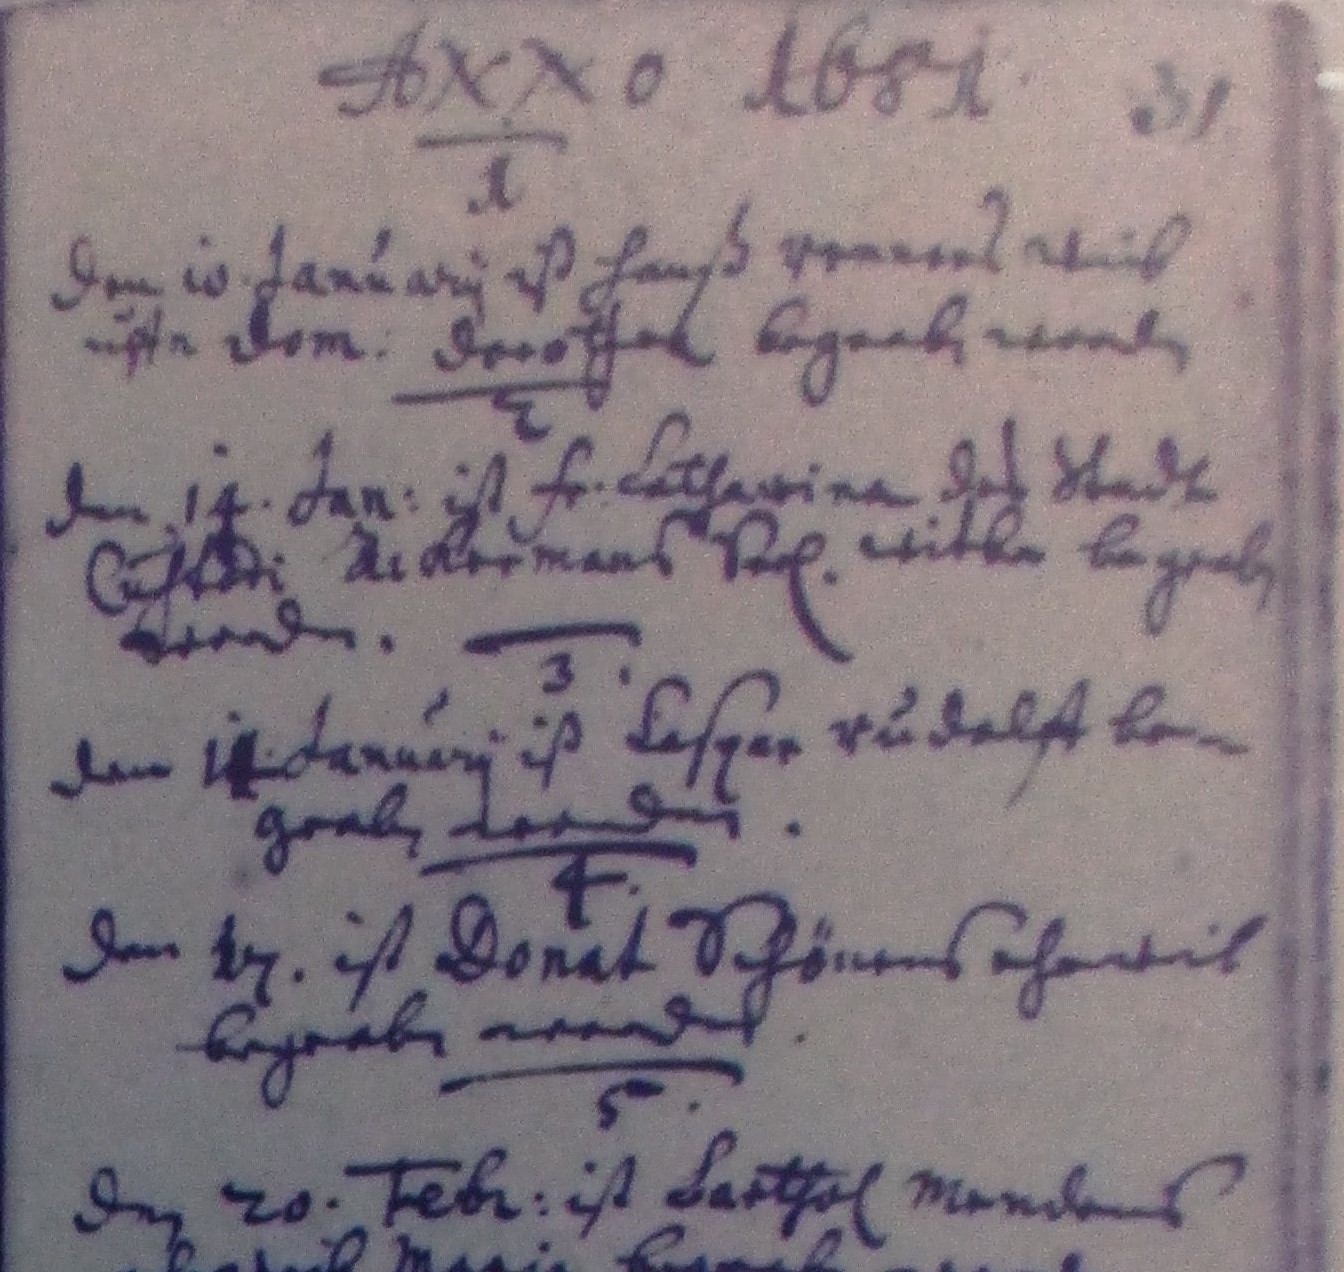 Anno 1681. 31
1
den 10. Januarij ist Hanß weib
Dom: Dorothea begrabn wordn
2
den 14. Jan: ist fr. Catharina des Stadt
Ackermans Sel. witbe begrabn
wordn.
3.
den 14. Januarij ist Caspar rudolff be-
grabn worden.
4.
den 17. ist Donat Schönens eheweib
begrabn worden.
5.
den 20. Febr: ist Barthol
eheweib Maria begrabn